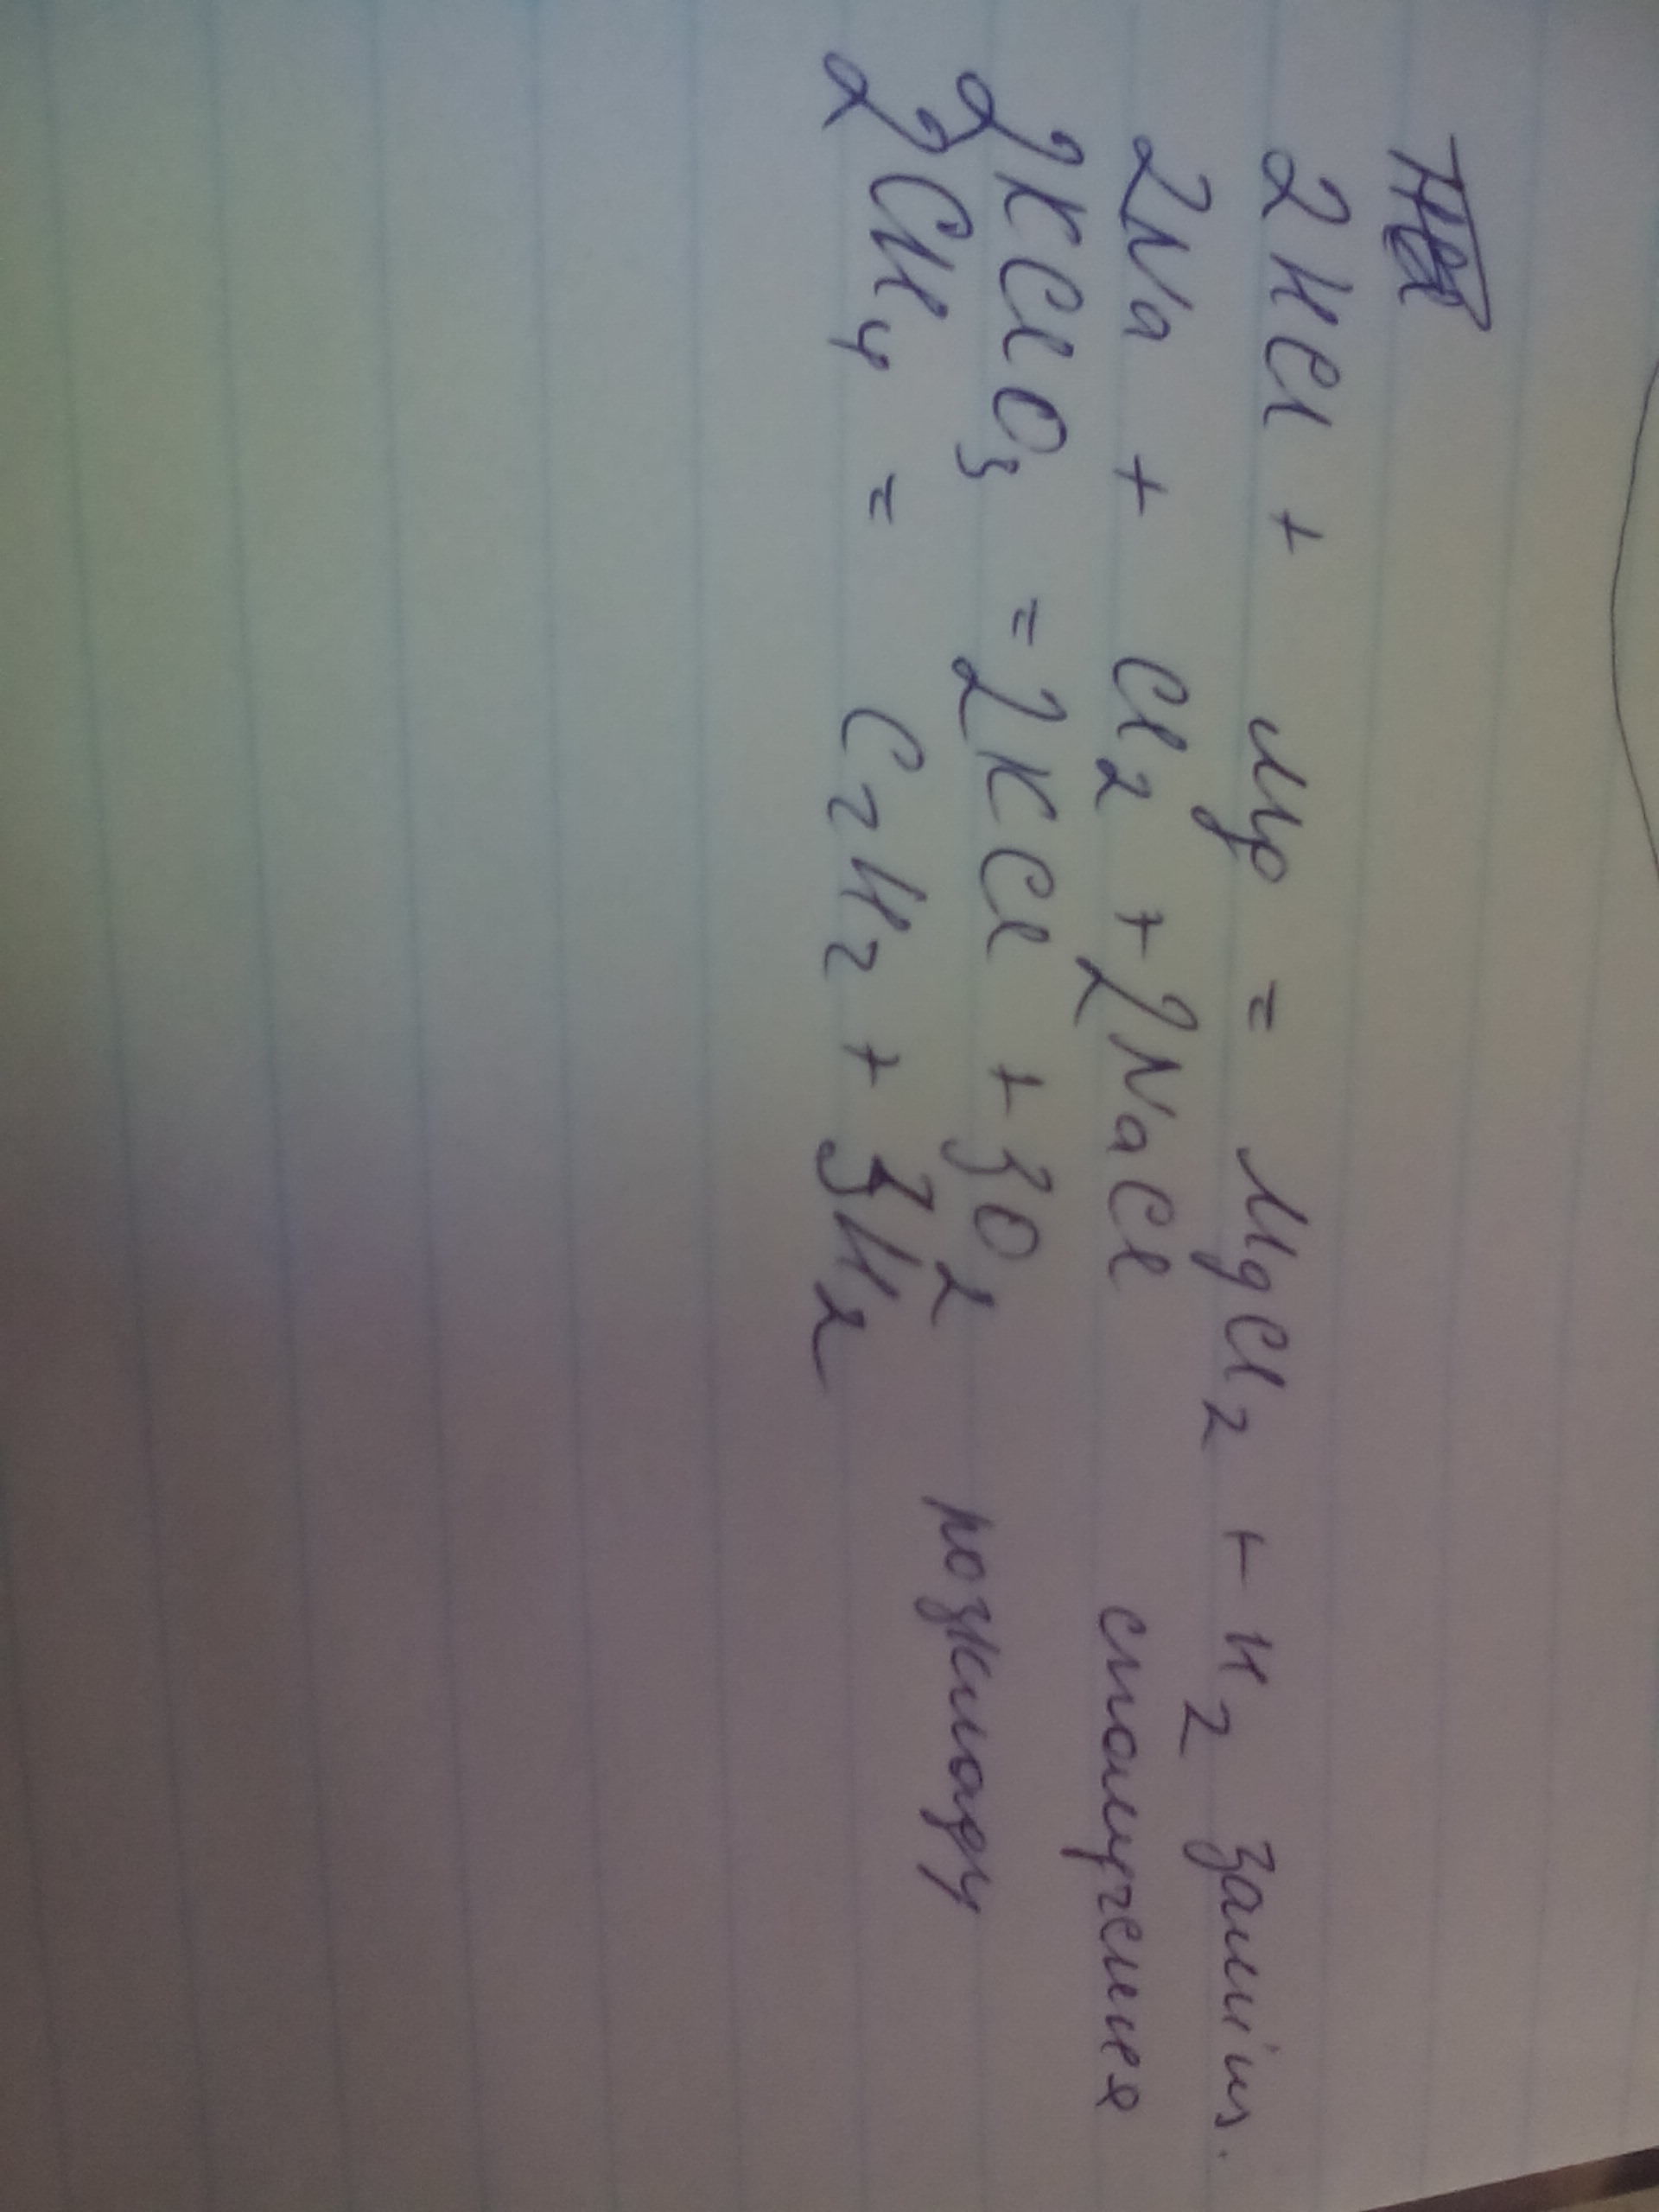 2HCl + Mg = MgCl₂ + H₂ заміщ.
2Na + Cl₂ + 2NaCl сполучення
2KClO₃ = 2KCl + 3O₂ розкладу
2CH₄ = C₂H₂ + 3H₂